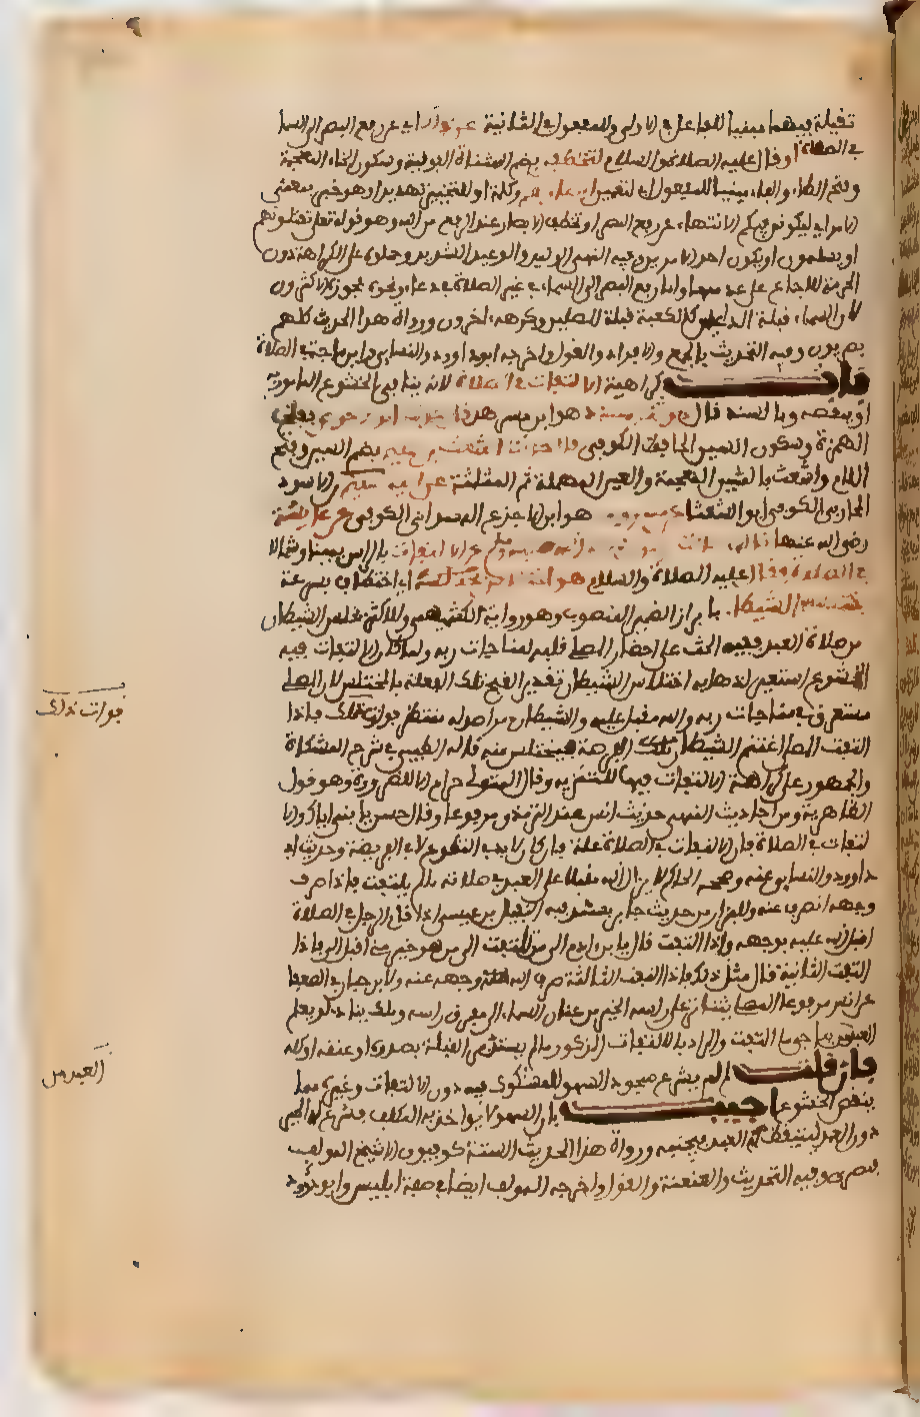 ثقيلة فيهما مبنيا للفاعل في الاولى وللمفعول في الثانية عن ذلك اي عن رفع البصر الى السما
في الصلاة او قال عليه الصلاة والسلام لتخطفن بضم المثناة الفوقية وسكون الخاء المعجمة
وفتح الطاء والفاء مبنيا للمفعول اي لتعمين ابصارهم وكلمة او للتخيير تهديدا وهو خبر بمعنى
الامر اي ليكونن منكم الانتهاء عن رفع البصر او تخطف الابصار عند الرفع من الله وهو قوله تعلى تقتلونهم
او يسلمون اي يكون احد الامرين وفيه النهي الوكيد والوعيد الشديد وحملوه على الكراهة دون
الحرمة للاجماع على عدمها واما رفع البصر الى السماء في غير الصلاة في دعاء ونحوه فجوزه الاكثرون
لان السماء قبلة الداعين كالكعبة قبلة المصلين وكرهه اخرون ورواة هذا الحديث كلهم
بصريون وفيه التحديث بالجمع والافراد والقول واخرجه ابو داوود والنسايي وابن ماجة في الصلاة
باب كراهية الالتفات في الصلاة لانه ينافي الخشوع المامور به
او ينقصه وبالسند قال حدثنا مسدد هو ابن مسرهد قال حدثنا ابو الاحوص بفتح
الهمزة وسكون السين الحافظ الكوفي قال حدثنا اشعث بن سليم بضم السين وفتح
اللام واشعث بالشين المعجمة والعين المهملة ثم المثلثة عن ابيه سليم بن الاسود
المحاربي الكوفي ابو الشعثا عن مسروق هو ابن الاجدع الهمداني الكوفي عن عايشة
رضي الله عنها قالت سالت رسول الله صلى الله عليه وسلم عن الالتفات بالراس يمينا وشمالا
في الصلاة فقال عليه الصلاة والسلام هو اختلاس اي اختطاف بسرعة
يختلسه الشيطان بابراز الضمير المنصوب وهو رواية الكشميهني وللاكثر يختلس الشيطان
من صلاة العبد ففيه الحث على احضار المصلي قلبه لمناجات ربه ولما كان الالتفات فيه
الخشوع استعير لذهابه اختلاس الشيطان تصويرا لقبح تلك الفعلة بالمختلس لان المصلي
مستغرق في مناجات ربه والله مقبل عليه والشيطان مراصد له ينتظر فوات ذلك فاذا
التفت المصلي اغتنم الشيطان تلك الفرصة فيختلس منه قاله الطيبي في شرح المشكاة
والجمهور على كراهة الالتفات فيها للتنزيه وقال المتولي حرام الا للضرورة وهو قول
الظاهرية ومن احاديث النهي حديث انس عند الترمذي مرفوعا وقال حسن يا بني اياك والا
لتفات في الصلاة فان الالتفات في الصلاة هلكة فان كان لا بد ففي التطوع لا في الفريضة وحديث ابي
داوود والنسايي عنه وصححه الحاكم لا يزال الله مقبلا على العبد في صلاته ما لم يلتفت فاذا صرف
وجهه انصرف عنه وللبزار من حديث جابر بسند فيه الفضل بن عيسى اذا قام الرجل في الصلاة
اقبل الله عليه بوجهه فاذا التفت قال يا ابن ادم الى من تلتفت الى من هو خير مني اقبل الي فاذا
التفت الثانية قال مثل ذلك فاذا التفت الثالثة صرف الله وجهه عنه ولابن حبان في الضعفا
عن انس مرفوعا المصلي يتناثر على راسه الخير من عنان السماء الى مفرق راسه وملك ينادي لو يعلم
العبد من يناجي ما التفت والمراد بالالتفات المذكور ما لم يستدبر القبلة بصدره او عنقه او كله
فان قلت لم لم يشرع سجود السهو للمشكوك فيه دون الالتفات وغيره مما
ينقص الخشوع اجيب بان السهو لا يواخذ به المكلف فشرع له الجبر
دون العمد ليتيقظ العبد فيجتنبه ورواة هذا الحديث الستة كوفيون الا شيخ المولف
فبصري وفيه التحديث والعنعنة والقول واخرجه المولف ايضا في صفة ابليس وابو داوود
فوات ذلك
العبد من